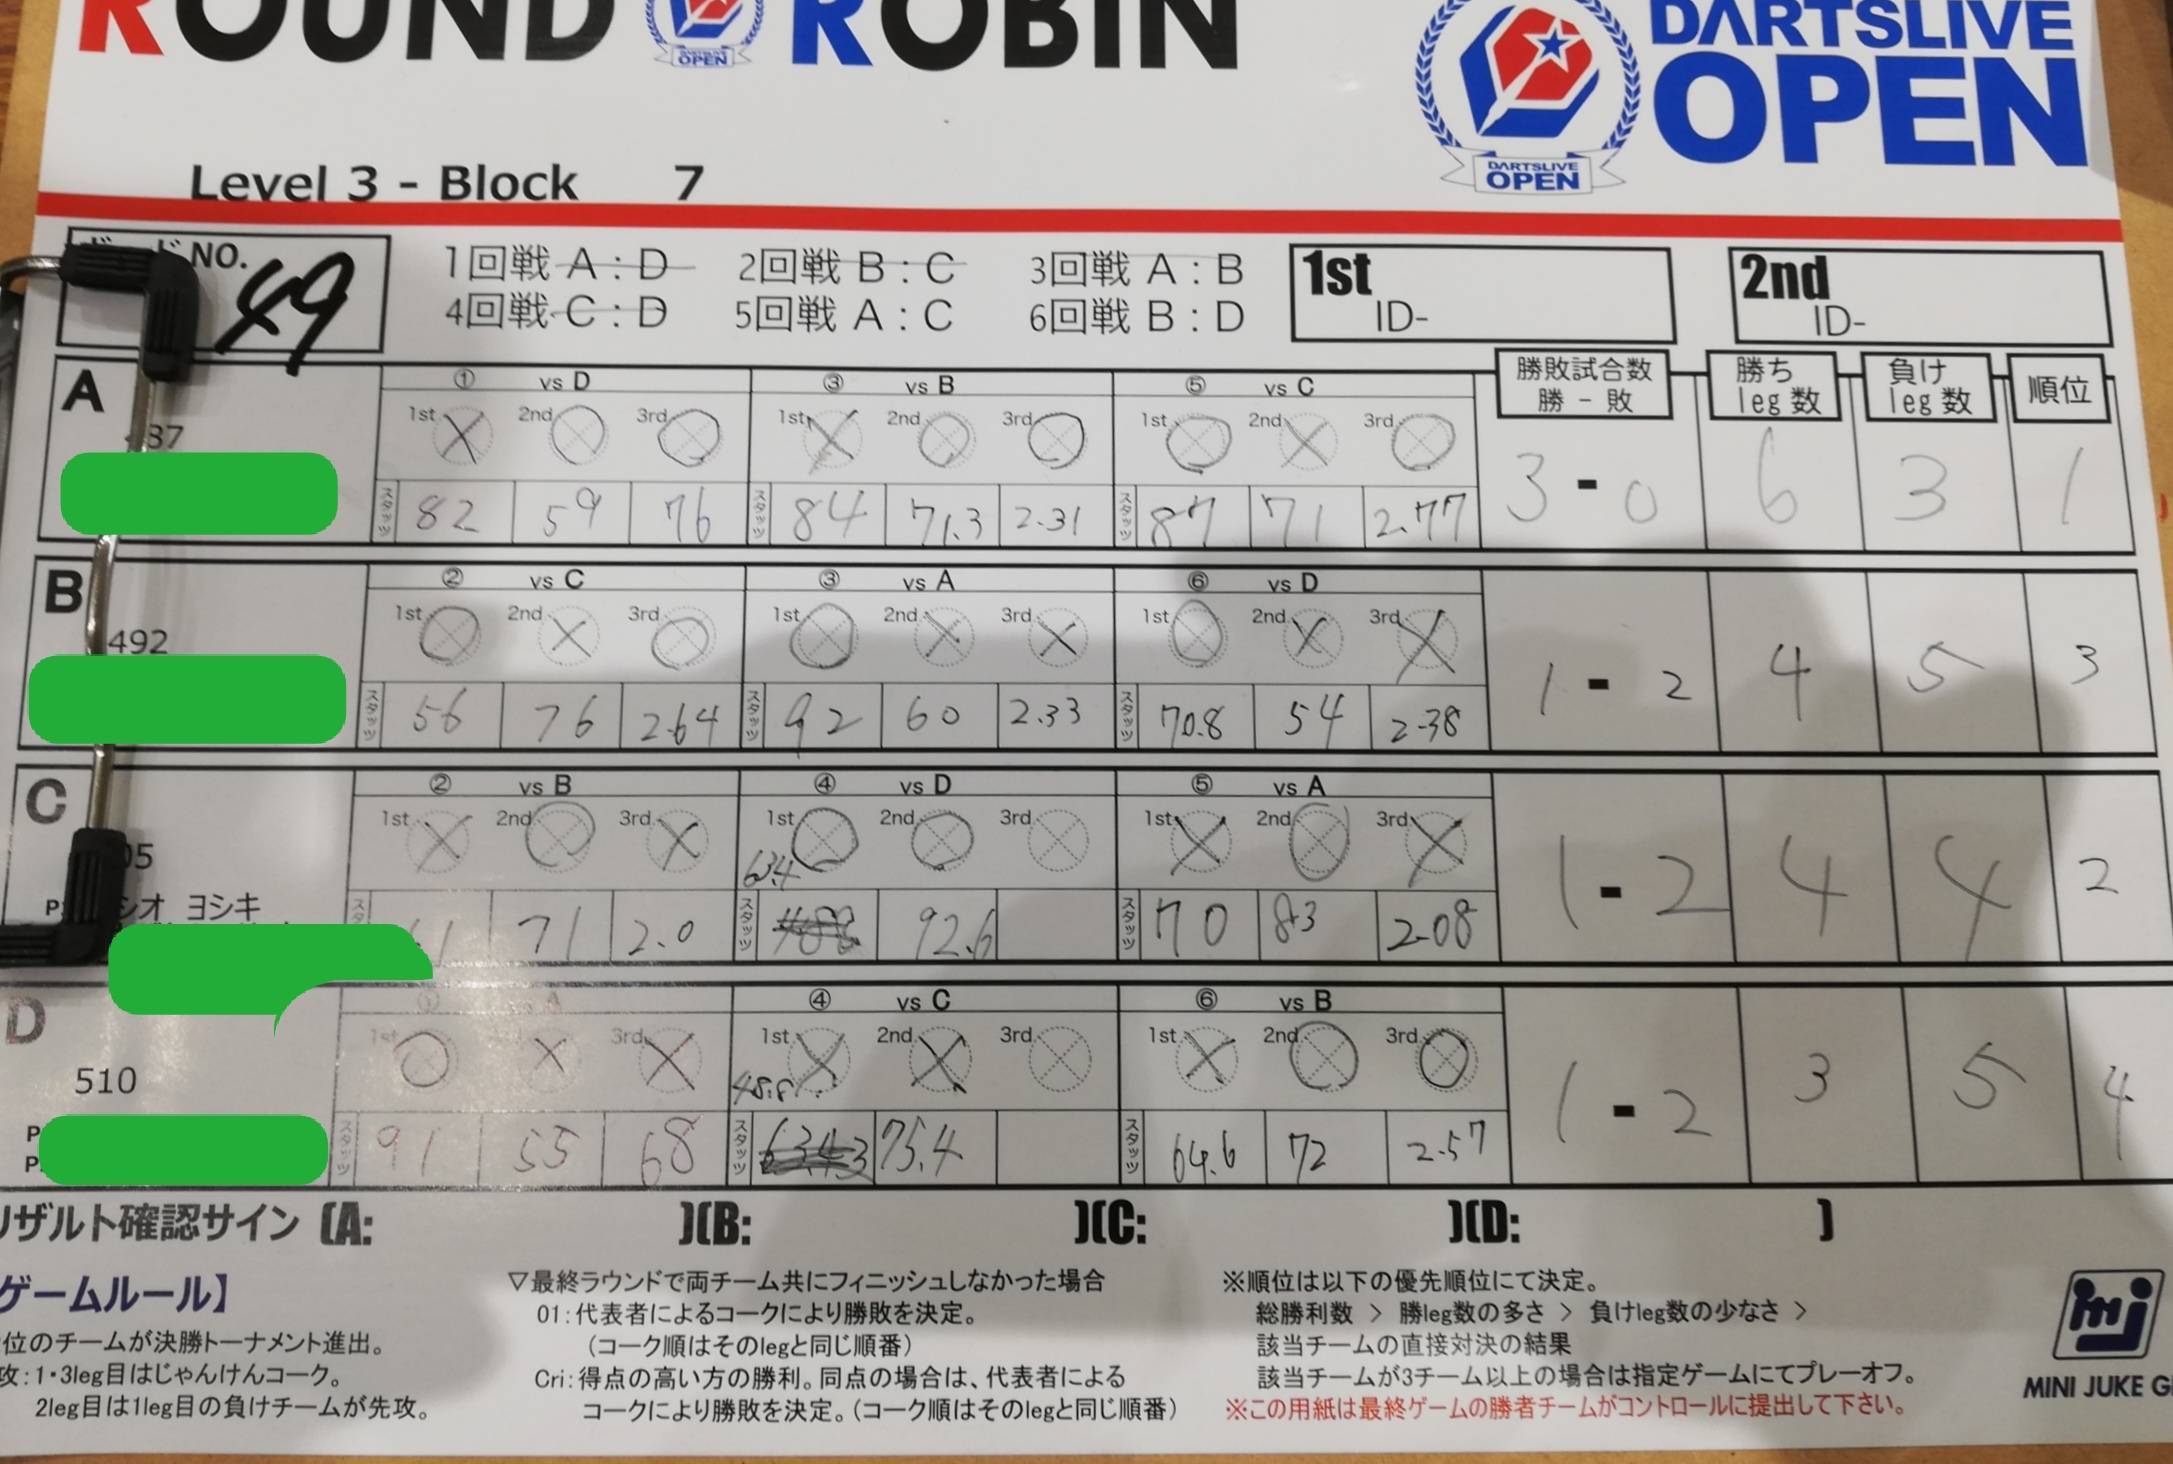 ROUND ROBIN
DARTSLIVE
OPEN
DARTSLIVE
OPEN
Level 3 - Block 7
NO. 49
1回戦 A : D 2回戦 B : C 3回戦 A : B
4回戦 C : D 5回戦 A : C 6回戦 B : D
1st
ID-
2nd
ID-
勝敗試合数
勝 - 敗
勝ち
leg 数
負け
leg 数
順位
A
① vs D ③ vs B ⑤ vs C
1st 2nd 3rd 1st 2nd 3rd 1st 2nd 3rd
スタッツ 82 59 76 スタッツ 84 71.3 2.31 スタッツ 87 71 2.77
3 - 0 6 3 1
B
492
② vs C ③ vs A ⑥ vs D
1st 2nd 3rd 1st 2nd 3rd 1st 2nd 3rd
スタッツ 56 76 2.64 スタッツ 92 60 2.33 スタッツ 70.8 54 2.38
1 - 2 4 5 3
C
05
シオ ヨシキ
② vs B ④ vs D ⑤ vs A
1st 2nd 3rd 1st 2nd 3rd 1st 2nd 3rd
63.4
スタッツ 71 2.0 スタッツ 92.6 スタッツ 70 83 2.08
1 - 2 4 4 2
D
510
① A ④ vs C ⑥ vs B
1st 2nd 3rd 1st 2nd 3rd 1st 2nd 3rd
48.8
スタッツ 91 55 68 スタッツ 75.4 スタッツ 64.6 72 2.57
1 - 2 3 5 4
リザルト確認サイン (A: )(B: )(C: )(D: )
ゲームルール】
位のチームが決勝トーナメント進出。
攻：1・3leg目はじゃんけんコーク。
2leg目は1leg目の負けチームが先攻。
▽最終ラウンドで両チーム共にフィニッシュしなかった場合
01：代表者によるコークにより勝敗を決定。
（コーク順はそのlegと同じ順番）
Cri：得点の高い方の勝利。同点の場合は、代表者による
コークにより勝敗を決定。（コーク順はそのlegと同じ順番）
※順位は以下の優先順位にて決定。
総勝利数 > 勝leg数の多さ > 負けleg数の少なさ >
該当チームの直接対決の結果
該当チームが3チーム以上の場合は指定ゲームにてプレーオフ。
※この用紙は最終ゲームの勝者チームがコントロールに提出して下さい。
MINI JUKE